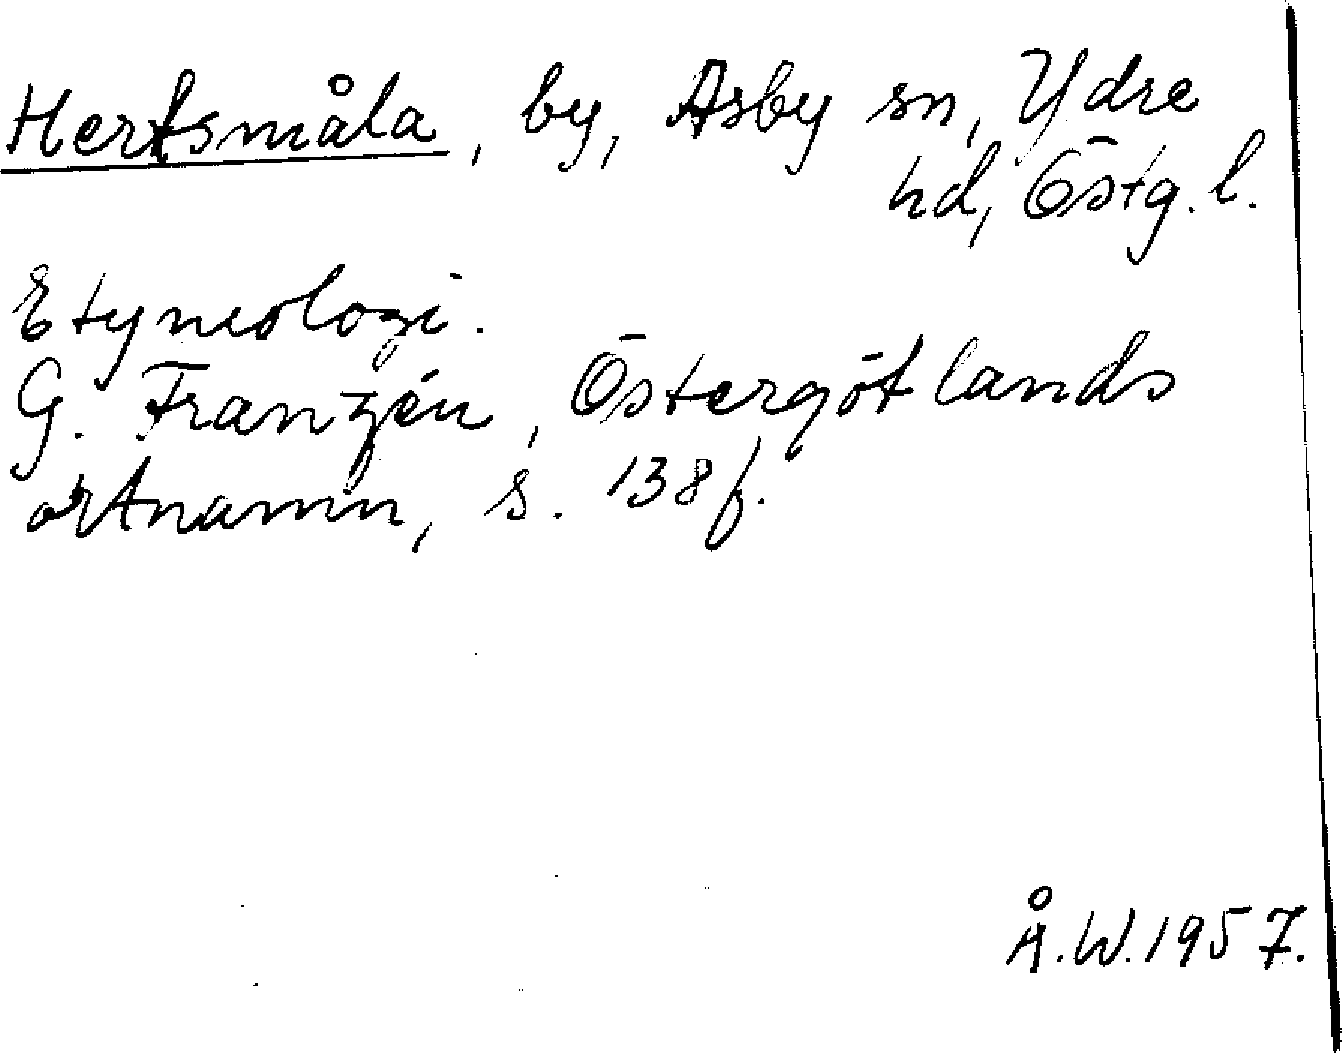 Hertsmåla, by, Asby sn, Ydre
hd, Östg. l.
Etymologi.
G. Franzén, Östergötlands
ortnamn, s. 138 f.
Å.W. 1957.